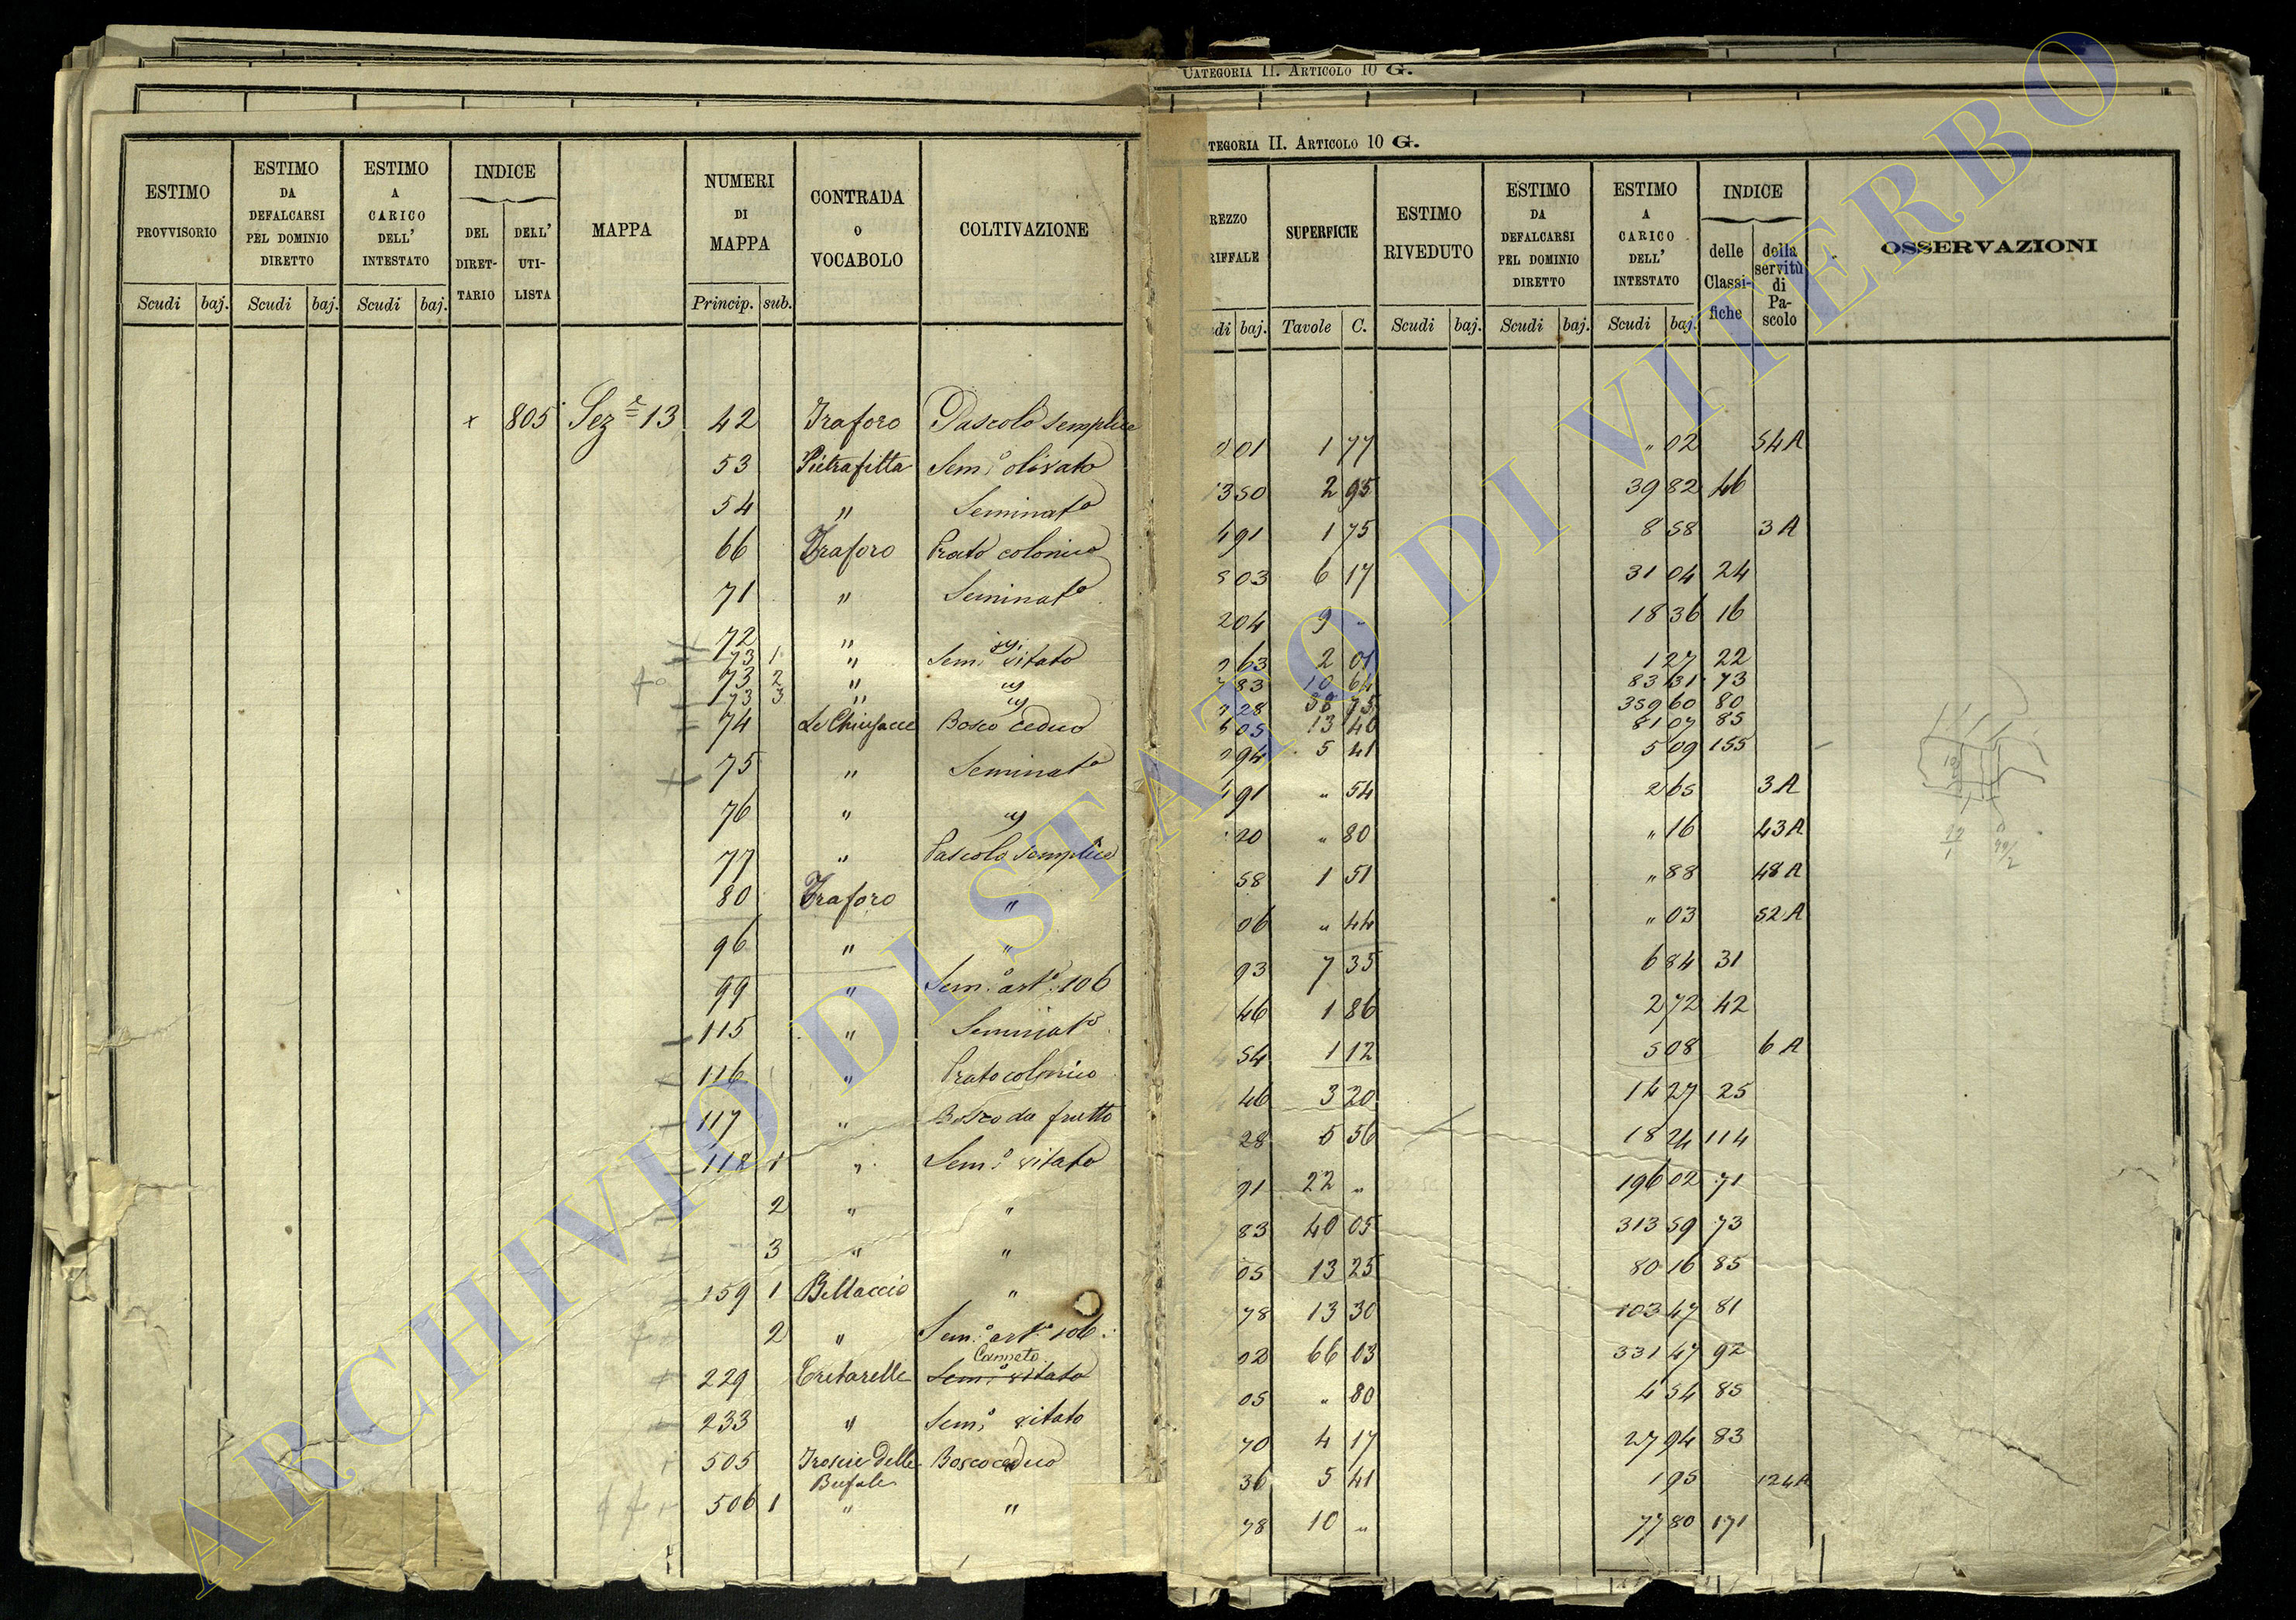 CATEGORIA II. ARTICOLO 10 G.
CATEGORIA II. ARTICOLO 10 G.
ESTIMO PROVVISORIO
ESTIMO DA DEFALCARSI PEL DOMINIO DIRETTO
ESTIMO A CARICO DELL' INTESTATO
INDICE
DEL DIRET-TARIO
DELL' UTI-LISTA
MAPPA
NUMERI DI MAPPA
CONTRADA O VOCABOLO
COLTIVAZIONE
Scudi baj. Scudi baj. Scudi baj. Princip. sub.
+ 805 Sez.e 13 42 Traforo Pascolo semplice
53 Pietrafitta Sem.o olivato
54 " Seminato
66 Traforo Prato colonico
71 " Seminato
72 " "
73 1 " Sem.o vitato
73 2 " "
73 3 " "
74 Le Chiusacce Bosco ceduo
75 " Seminato
76 " "
77 " Pascolo semplice
80 Traforo "
96 " "
99 " Sem.o art.o 106
115 " Seminato
116 " Prato colonico
117 " Bosco da frutto
118 1 " Sem.o vitato
2 " "
3 " "
159 1 Bellaccio "
2 " Sem.o art.o 106
Canneto
229 Cretarelle Sem.o vitato
233 " Sem.o vitato
505 Troscie delle Bufale Bosco ceduo
506 1 " "
PREZZO TARIFFALE
SUPERFICIE
ESTIMO RIVEDUTO
ESTIMO DA DEFALCARSI PEL DOMINIO DIRETTO
ESTIMO A CARICO DELL' INTESTATO
INDICE
delle Classi-fiche
della servitù di Pa-scolo
OSSERVAZIONI
Scudi baj. Tavole C. Scudi baj. Scudi baj. Scudi baj.
01 1 77 " 02 54A
13 50 2 95 39 82 46
4 91 1 75 8 58 3A
5 03 6 17 31 04 24
2 04 9 - 18 36 16
63 2 01 1 27 22
7 83 10 64 83 31 73
28 58 75 359 60 80
6 05 13 40 81 07 85
94 5 41 5 09 155
4 91 " 54 2 65 3A
20 " 80 " 16 43A
58 1 51 " 88 48A
06 " 44 " 03 52A
93 7 35 6 84 31
46 1 86 2 72 42
4 54 1 12 5 08 6A
46 3 20 14 27 25
28 5 56 18 24 114
91 22 " 196 02 71
7 83 40 05 313 59 73
05 13 25 80 16 85
78 13 30 103 47 81
02 66 03 331 47 92
05 " 80 4 54 85
70 4 17 27 94 83
36 5 41 1 95 124A
78 10 " 77 80 171
ARCHIVIO DI STATO DI VITERBO